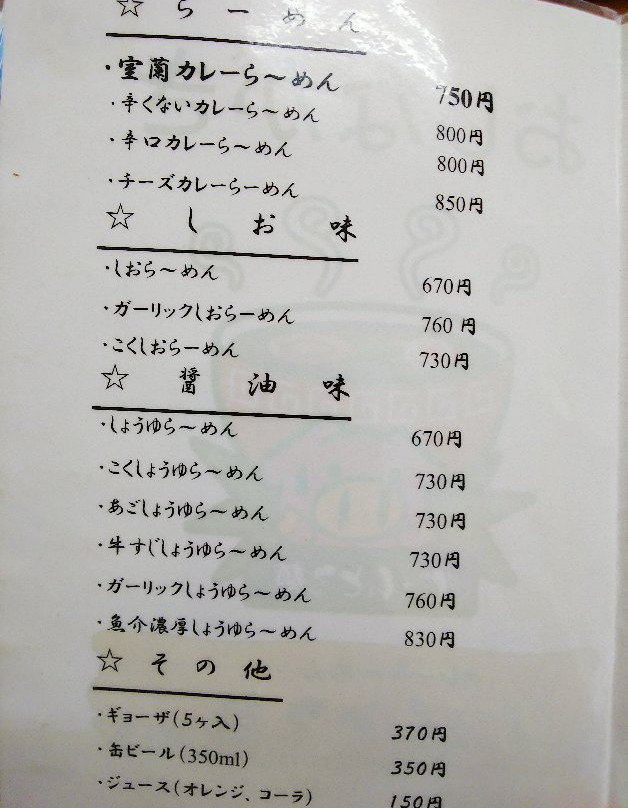 ☆ らーめん
・室蘭カレーら～めん 750円
・辛くないカレーら～めん 800円
・辛口カレーら～めん 800円
・チーズカレーらーめん 850円
☆ しお味
・しおら～めん 670円
・ガーリックしおらーめん 760円
・こくしおらーめん 730円
☆ 醤油味
・しょうゆら～めん 670円
・こくしょうゆら～めん 730円
・あごしょうゆら～めん 730円
・牛すじしょうゆら～めん 730円
・ガーリックしょうゆら～めん 760円
・魚介濃厚しょうゆら～めん 830円
☆ その他
・ギョーザ(5ヶ入) 370円
・缶ビール(350ml) 350円
・ジュース(オレンジ、コーラ) 150円